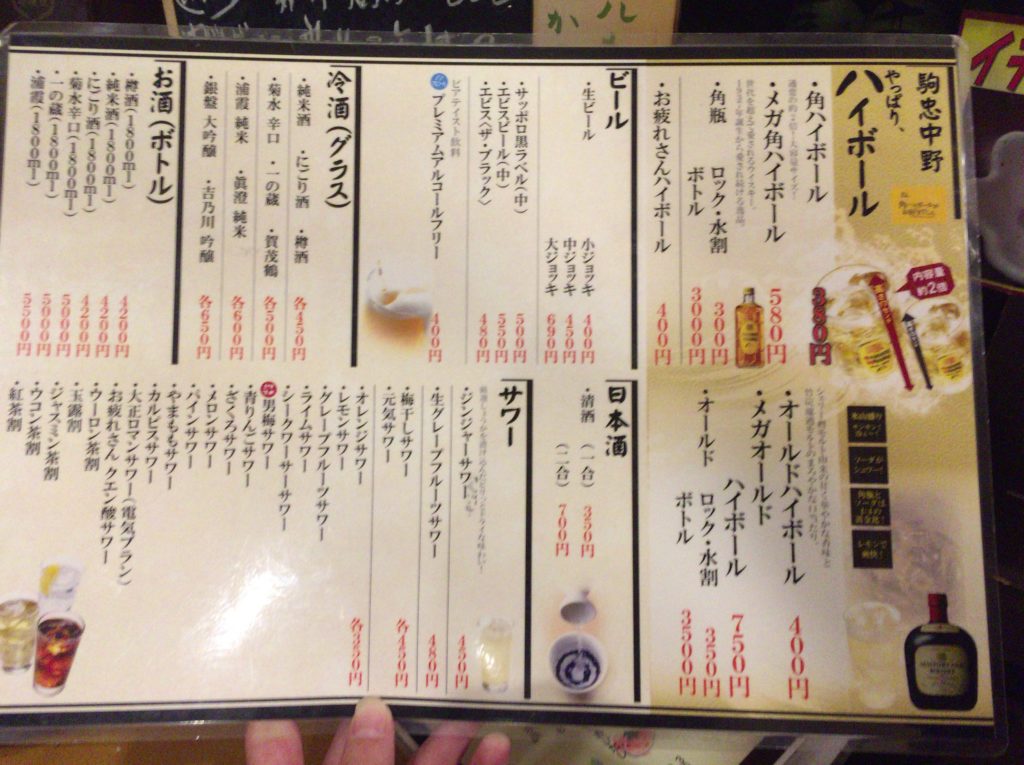 駒忠中野
やっぱり、
ハイボール
内容量
約2倍
・角ハイボール
380円
・メガ角ハイボール
580円
・角瓶
ロック・水割
300円
ボトル
3000円
・お疲れさんハイボール
400円
・オールドハイボール
400円
・メガオールド
ハイボール
750円
・オールド
ロック・水割
350円
ボトル
3500円
レモンで
爽快!
ビール
・生ビール
小ジョッキ
400円
中ジョッキ
450円
大ジョッキ
690円
・サッポロ黒ラベル(中)
500円
・エビスビール(中)
550円
・エビス〈ザ・ブラック〉
480円
ビアテイスト飲料
プレミアムアルコールフリー
400円
日本酒
・清酒
(一合)
350円
(二合)
700円
冷酒(グラス)
・純米酒
・にごり酒
・樽酒
各450円
・菊水 辛口
・一の蔵
・賀茂鶴
各500円
・浦霞 純米
・眞澄 純米
各600円
・銀盤 大吟醸
・吉乃川 吟醸
各650円
お酒(ボトル)
・樽酒(1800ml)
4200円
・純米酒(1800ml)
4200円
・にごり酒(1800ml)
4200円
・菊水辛口(1800ml)
5000円
・一の蔵(1800ml)
5000円
・浦霞(1800ml)
5500円
サワー
・ジンジャーサワー
450円
・生グレープフルーツサワー
480円
・梅干しサワー
・元気サワー
各450円
・オレンジサワー
・レモンサワー
・グレープフルーツサワー
・ライムサワー
・シークワーサーサワー
男梅サワー
・青りんごサワー
・ざくろサワー
・メロンサワー
・パインサワー
・やまももサワー
・カルピスサワー
・大正ロマンサワー(電気ブラン)
・お疲れさん クエン酸サワー
・ウーロン茶割
・玉露割
・ジャスミン茶割
・ウコン茶割
・紅茶割
各350円